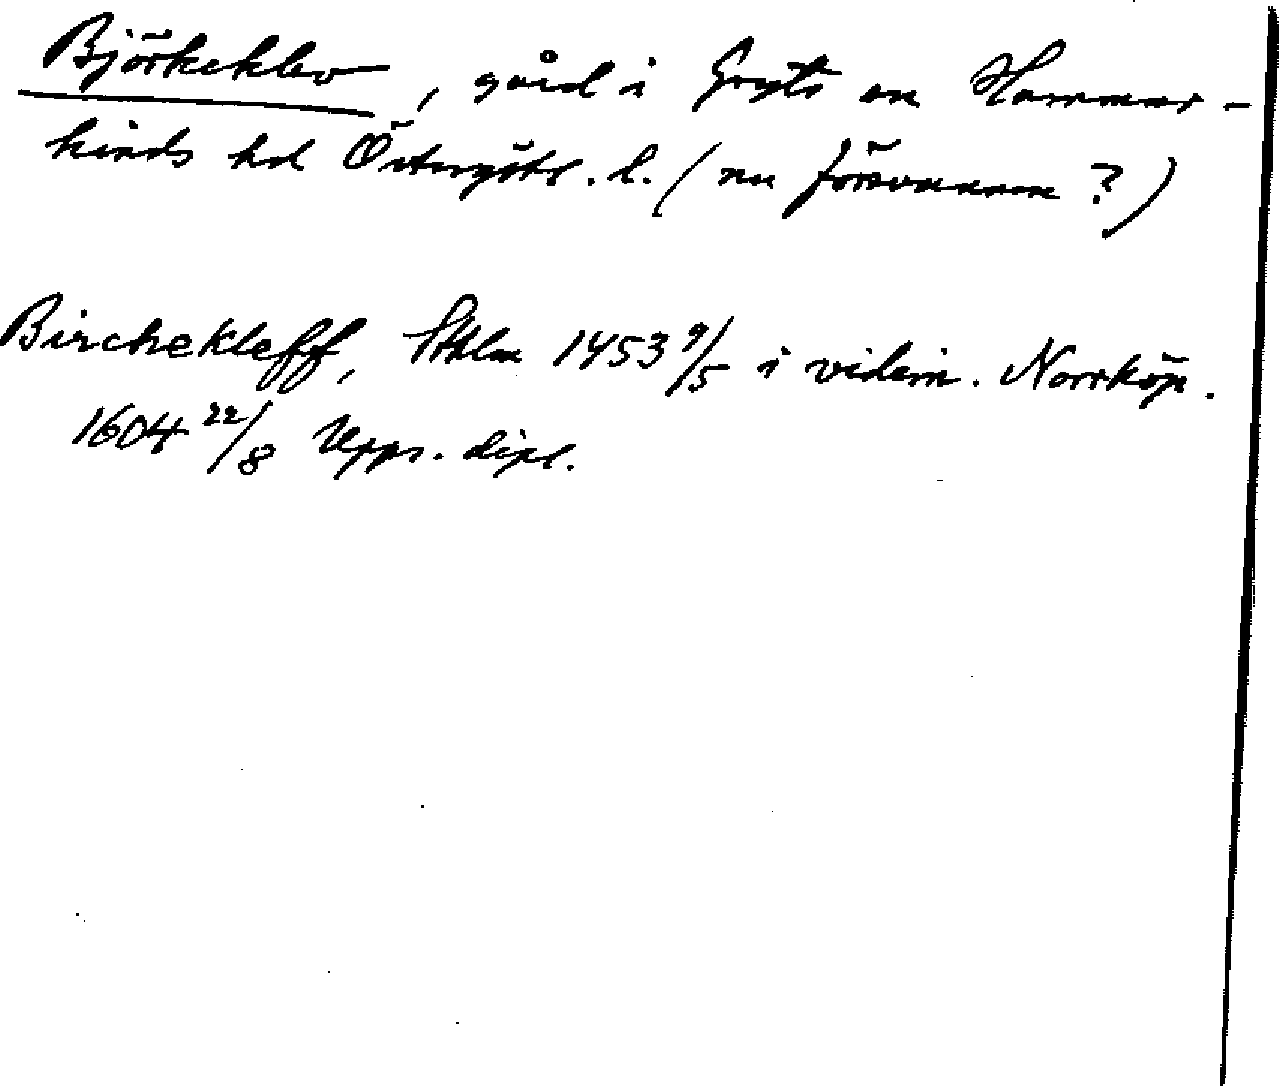 Björkeklev, gård i Gryts sn Hammar-
kinds hd Östergötl. l. (nu försvunnen ?)
Birchekleff, Sthlm 1453 9/5 i vidim. Norrköp.
1604 22/8 Upps. dipl.